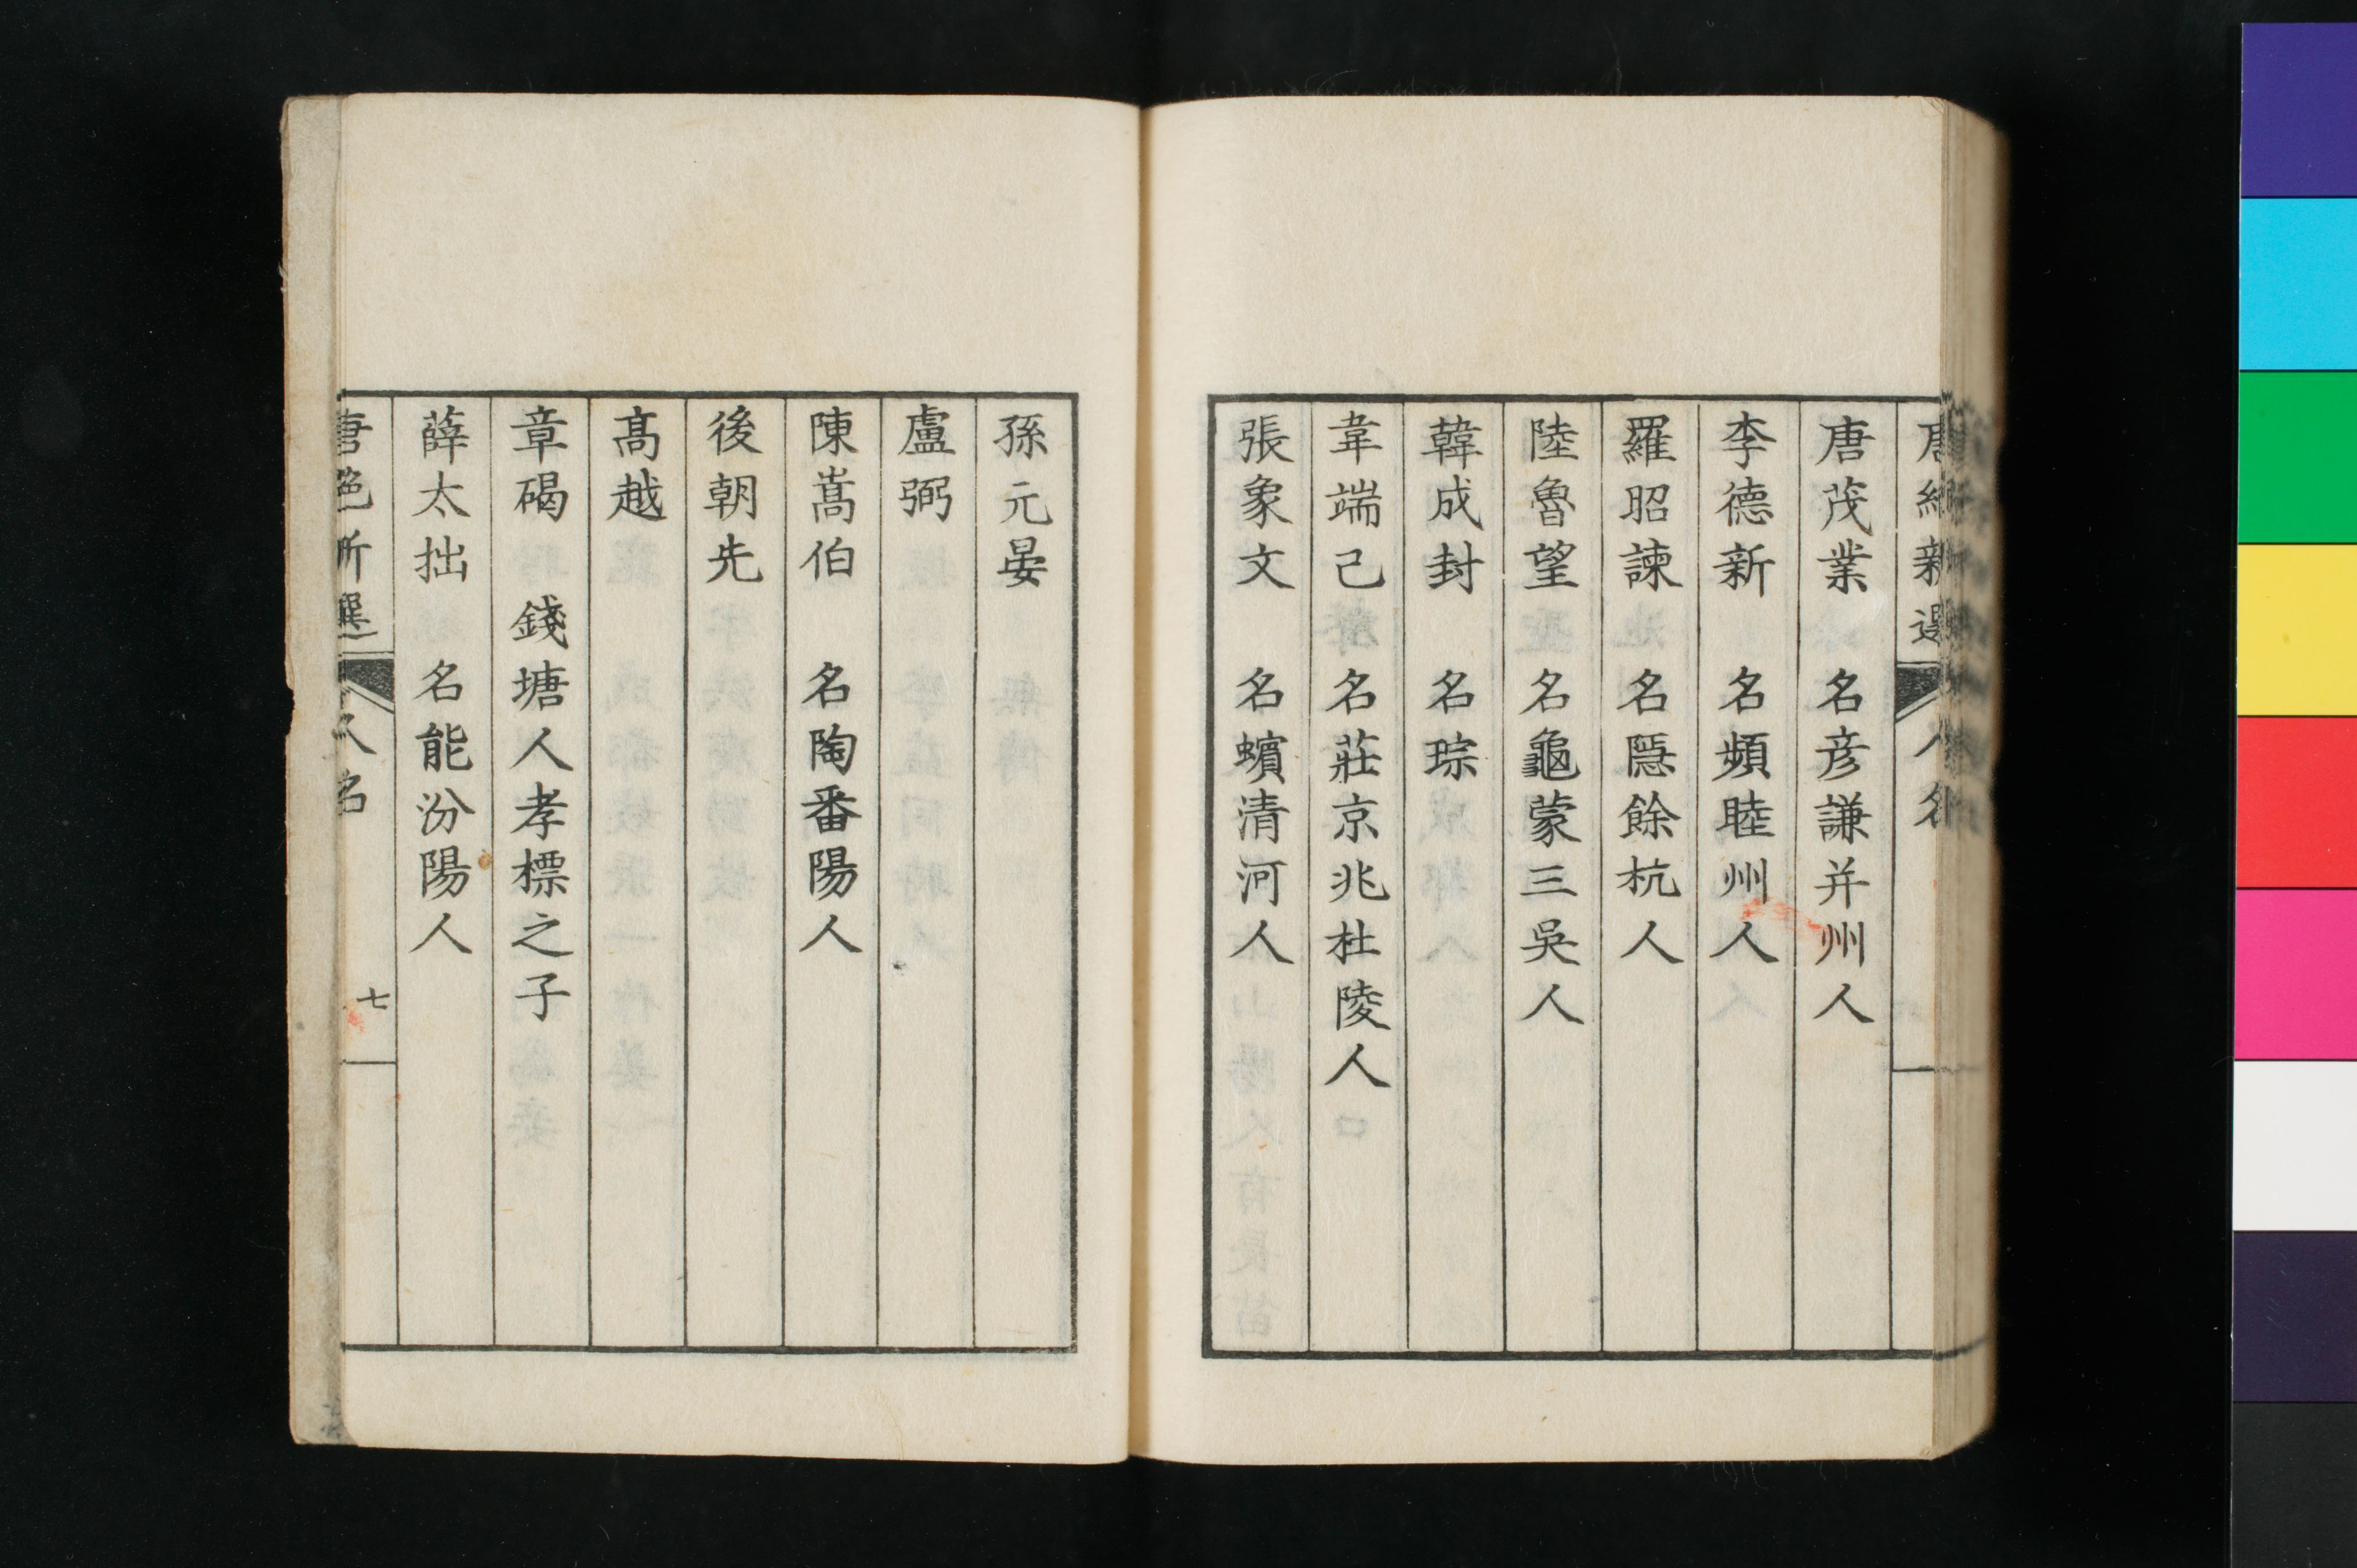 唐絶新選
人名
唐茂業　名彦謙并州人
李德新　名頻睦州人
羅昭諫　名隱餘杭人
陸魯望　名龜蒙三吳人
韓成封　名琮
韋端己　名莊京兆杜陵人
張象文　名蠙清河人
孫元晏
盧弼
陳嵩伯　名陶番陽人
後朝先
高越
章碣　錢塘人孝標之子
薛太拙　名能汾陽人
唐絶新選
人名
七